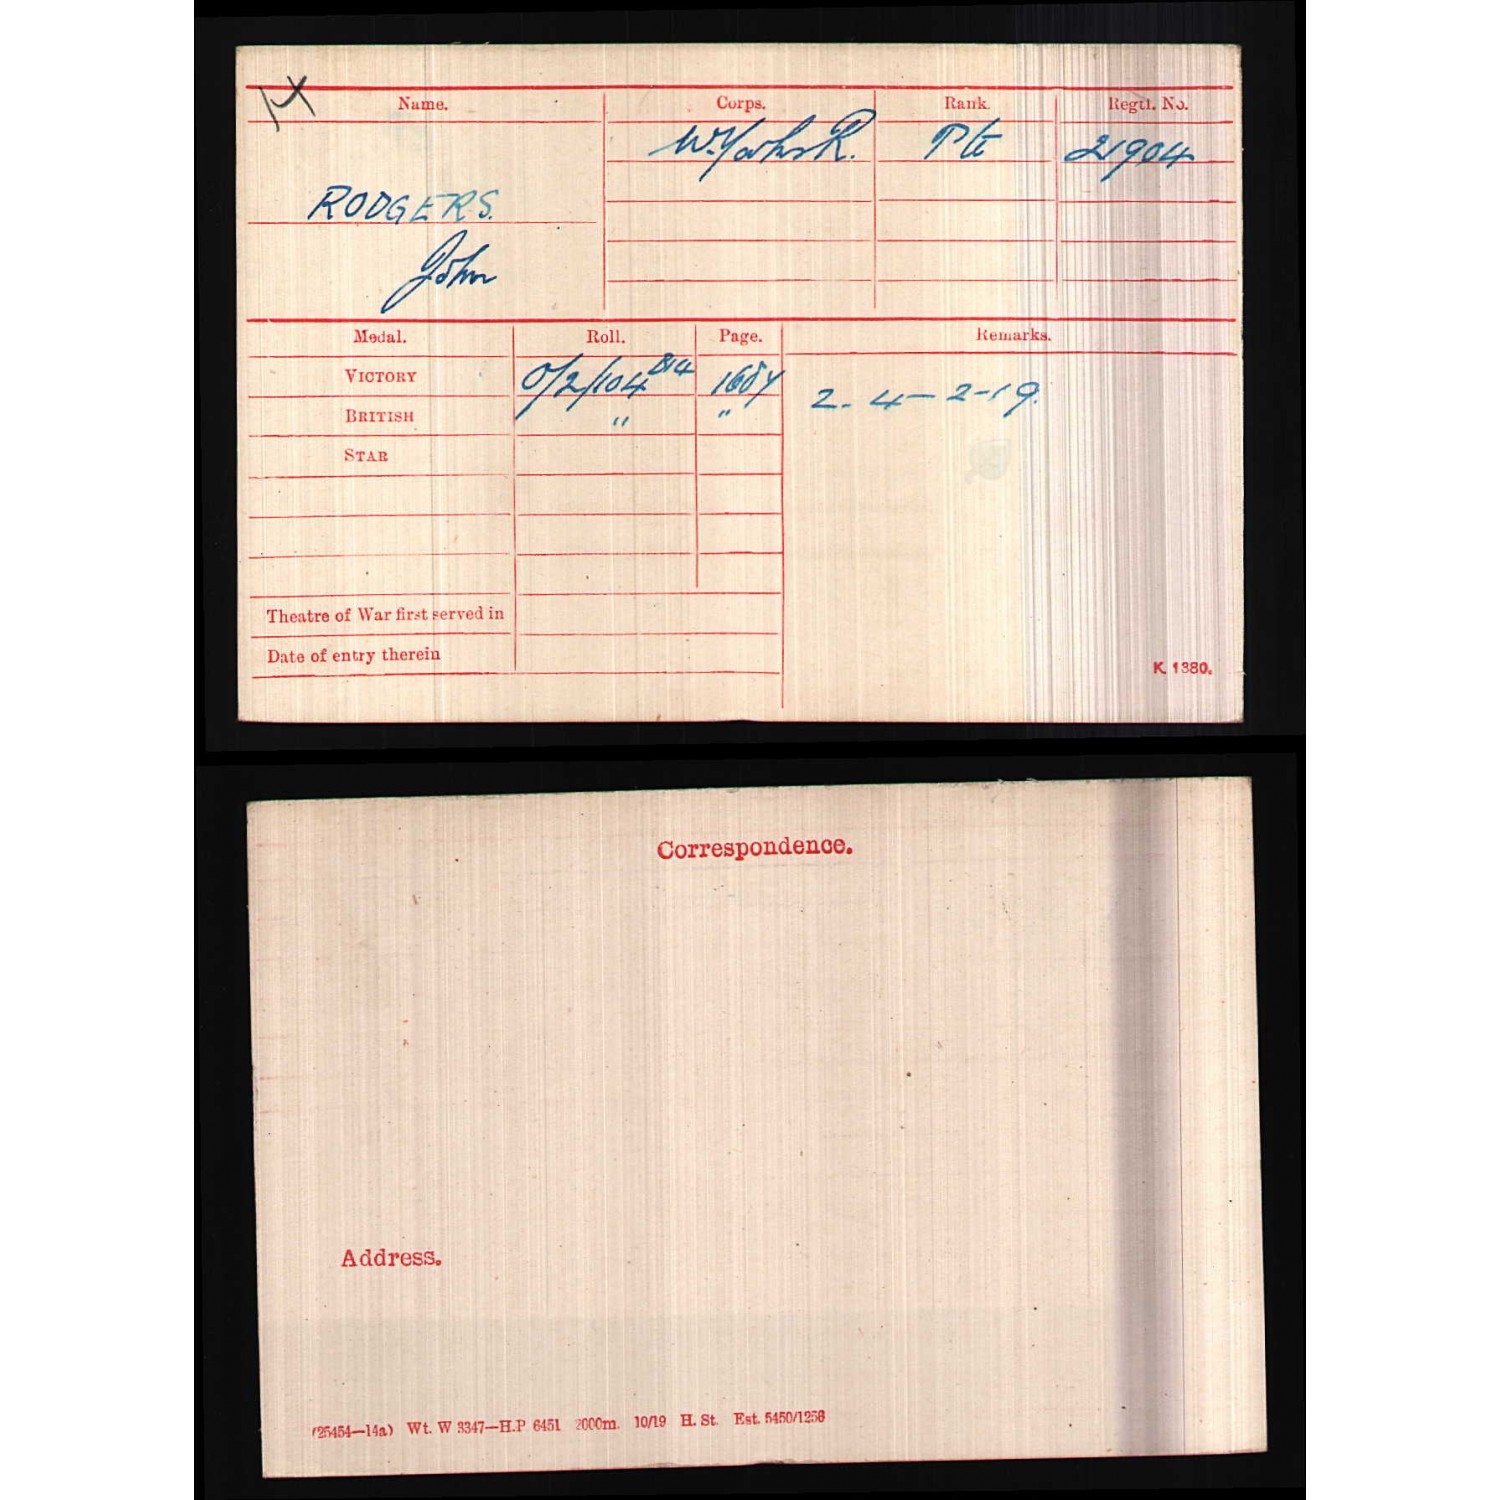 Name. Corps. Rank. Regtl. No.
W. Yorks R. Pte 21904
RODGERS.
John
Medal. Roll. Page. Remarks.
VICTORY O/2/104 B14
BRITISH " " 2. 4-2-19.
STAR
Theatre of War first served in
Date of entry therein
K. 1380.
Correspondence.
Address.
(25454—14a) Wt. W 3347—H.P 6451 2000m. 10/19 H. St. Est. 5450/1256